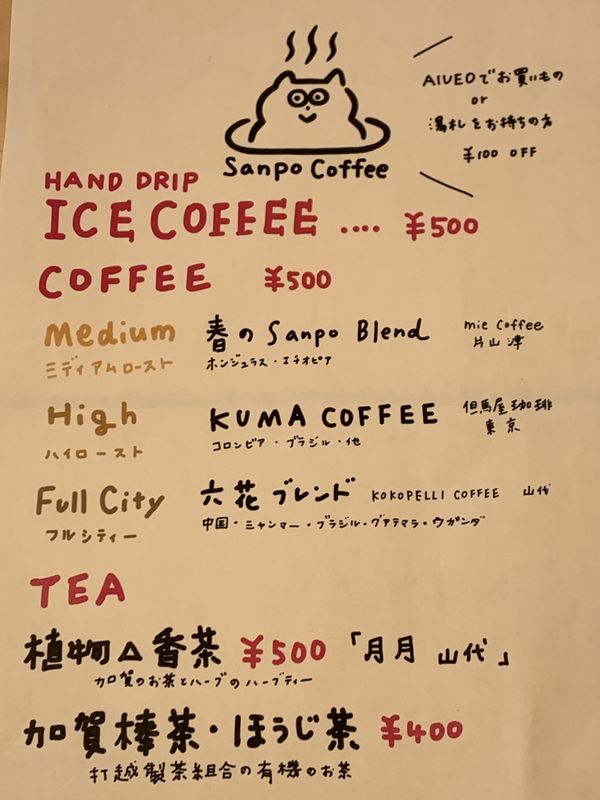 AIUEOでお買いもの
or
湯札をお持ちの方
¥100 OFF
Sanpo Coffee
HAND DRIP
ICE COFFEE .... ¥500
COFFEE ¥500
Medium 春の Sanpo Blend mie Coffee
片山津
ミディアムロースト ホンジュラス・エチオピア
High KUMA COFFEE 但馬屋珈琲
東京
ハイロースト コロンビア・ブラジル・他
Full City 六花ブレンド KOKOPELLI COFFEE 山代
フルシティー 中国・ミャンマー・ブラジル・グアテマラ・ウガンダ
TEA
植物△香茶 ¥500 「月月 山代」
加賀のお茶とハーブのハーブティー
加賀棒茶・ほうじ茶 ¥400
打越製茶組合の有機のお茶